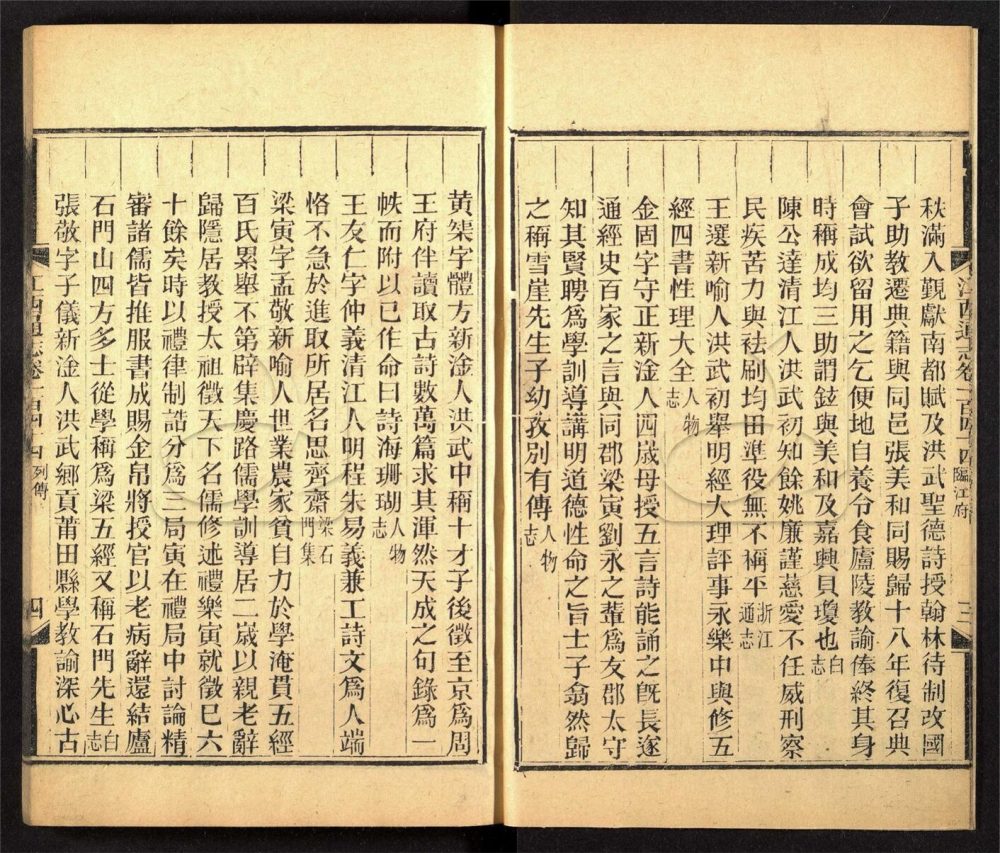 秩滿入覲獻南都賦及洪武聖德詩授翰林待制改國
子助教遷典籍與同邑張美和同賜歸十八年復召典
會試欲留用之乞便地自養令食廬陵教諭俸終其身
時稱成均三助謂鉉與美和及嘉興貝瓊也白志
陳公達清江人洪武初知餘姚廉謹慈愛不任威刑察
民疾苦力與祛刷均田準役無不稱平浙江通志
王選新喻人洪武初舉明經大理評事永樂中與修五
經四書性理大全人物志
金固字守正新淦人四歲母授五言詩能誦之旣長遂
通經史百家之言與同郡梁寅劉永之輩爲友郡太守
知其賢聘爲學訓導講明道德性命之旨士子翕然歸
之稱雪崖先生子幼孜別有傳人物志
江西通志卷一百四十四 臨江府 三
黃棨字體方新淦人洪武中稱十才子後徵至京爲周
王府伴讀取古詩數萬篇求其渾然天成之句錄爲一
帙而附以已作命曰詩海珊瑚人物志
王友仁字仲義清江人明程朱易義兼工詩文爲人端
恪不急於進取所居名思齊齋梁石門集
梁寅字孟敬新喻人世業農家貧自力於學淹貫五經
百氏累舉不第辟集慶路儒學訓導居二歲以親老辭
歸隱居教授太祖徵天下名儒修述禮樂寅就徵巳六
十餘矣時以禮律制誥分爲三局寅在禮局中討論精
審諸儒皆推服書成賜金帛將授官以老病辭還結廬
石門山四方多士從學稱爲梁五經又稱石門先生白志
張敬字子儀新淦人洪武鄉貢莆田縣學教諭深心古
江西通志卷一百四十四 列傳 四